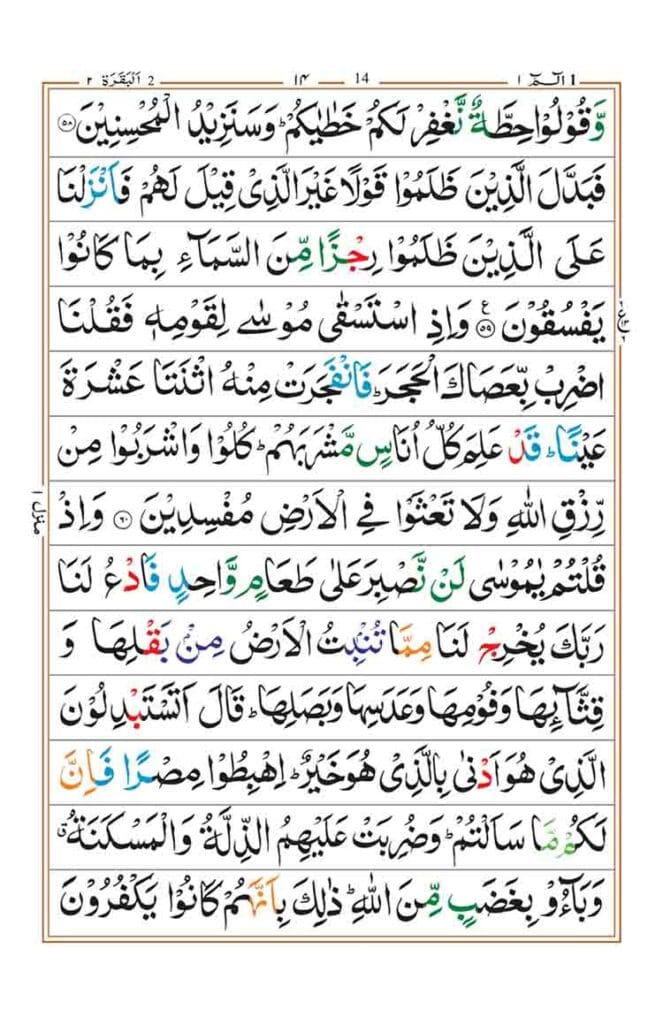 الٓمّٓ ١ 1 14 ١٤ 2 اَلْبَقَرَة ٢
وَّقُوْلُوْا حِطَّةٌ نَّغْفِرْ لَكُمْ خَطٰيٰكُمْ ؕ وَسَنَزِيْدُ الْمُحْسِنِيْنَ ۝۵۸
فَبَدَّلَ الَّذِيْنَ ظَلَمُوْا قَوْلًا غَيْرَ الَّذِيْ قِيْلَ لَهُمْ فَاَنْزَلْنَا
عَلَى الَّذِيْنَ ظَلَمُوْا رِجْزًا مِّنَ السَّمَآءِ بِمَا كَانُوْا
يَفْسُقُوْنَ ۝۵۹ ع وَاِذِ اسْتَسْقٰى مُوْسٰى لِقَوْمِهٖ فَقُلْنَا
اضْرِبْ بِّعَصَاكَ الْحَجَرَ ؕ فَانْفَجَرَتْ مِنْهُ اثْنَتَا عَشْرَةَ
عَيْنًا ؕ قَدْ عَلِمَ كُلُّ اُنَاسٍ مَّشْرَبَهُمْ ؕ كُلُوْا وَاشْرَبُوْا مِنْ
رِّزْقِ اللّٰهِ وَلَا تَعْثَوْا فِي الْاَرْضِ مُفْسِدِيْنَ ۝۶۰ وَاِذْ
قُلْتُمْ يٰمُوْسٰى لَنْ نَّصْبِرَ عَلٰى طَعَامٍ وَّاحِدٍ فَادْعُ لَنَا
رَبَّكَ يُخْرِجْ لَنَا مِمَّا تُنْۢبِتُ الْاَرْضُ مِنْۢ بَقْلِهَا وَ
قِثَّآئِهَا وَفُوْمِهَا وَعَدَسِهَا وَبَصَلِهَا ؕ قَالَ اَتَسْتَبْدِلُوْنَ
الَّذِيْ هُوَ اَدْنٰى بِالَّذِيْ هُوَ خَيْرٌ ؕ اِهْبِطُوْا مِصْرًا فَاِنَّ
لَكُمْ مَّا سَاَلْتُمْ ؕ وَضُرِبَتْ عَلَيْهِمُ الذِّلَّةُ وَالْمَسْكَنَةُ ۗ
وَبَآءُوْ بِغَضَبٍ مِّنَ اللّٰهِ ؕ ذٰلِكَ بِاَنَّهُمْ كَانُوْا يَكْفُرُوْنَ
منزل ١